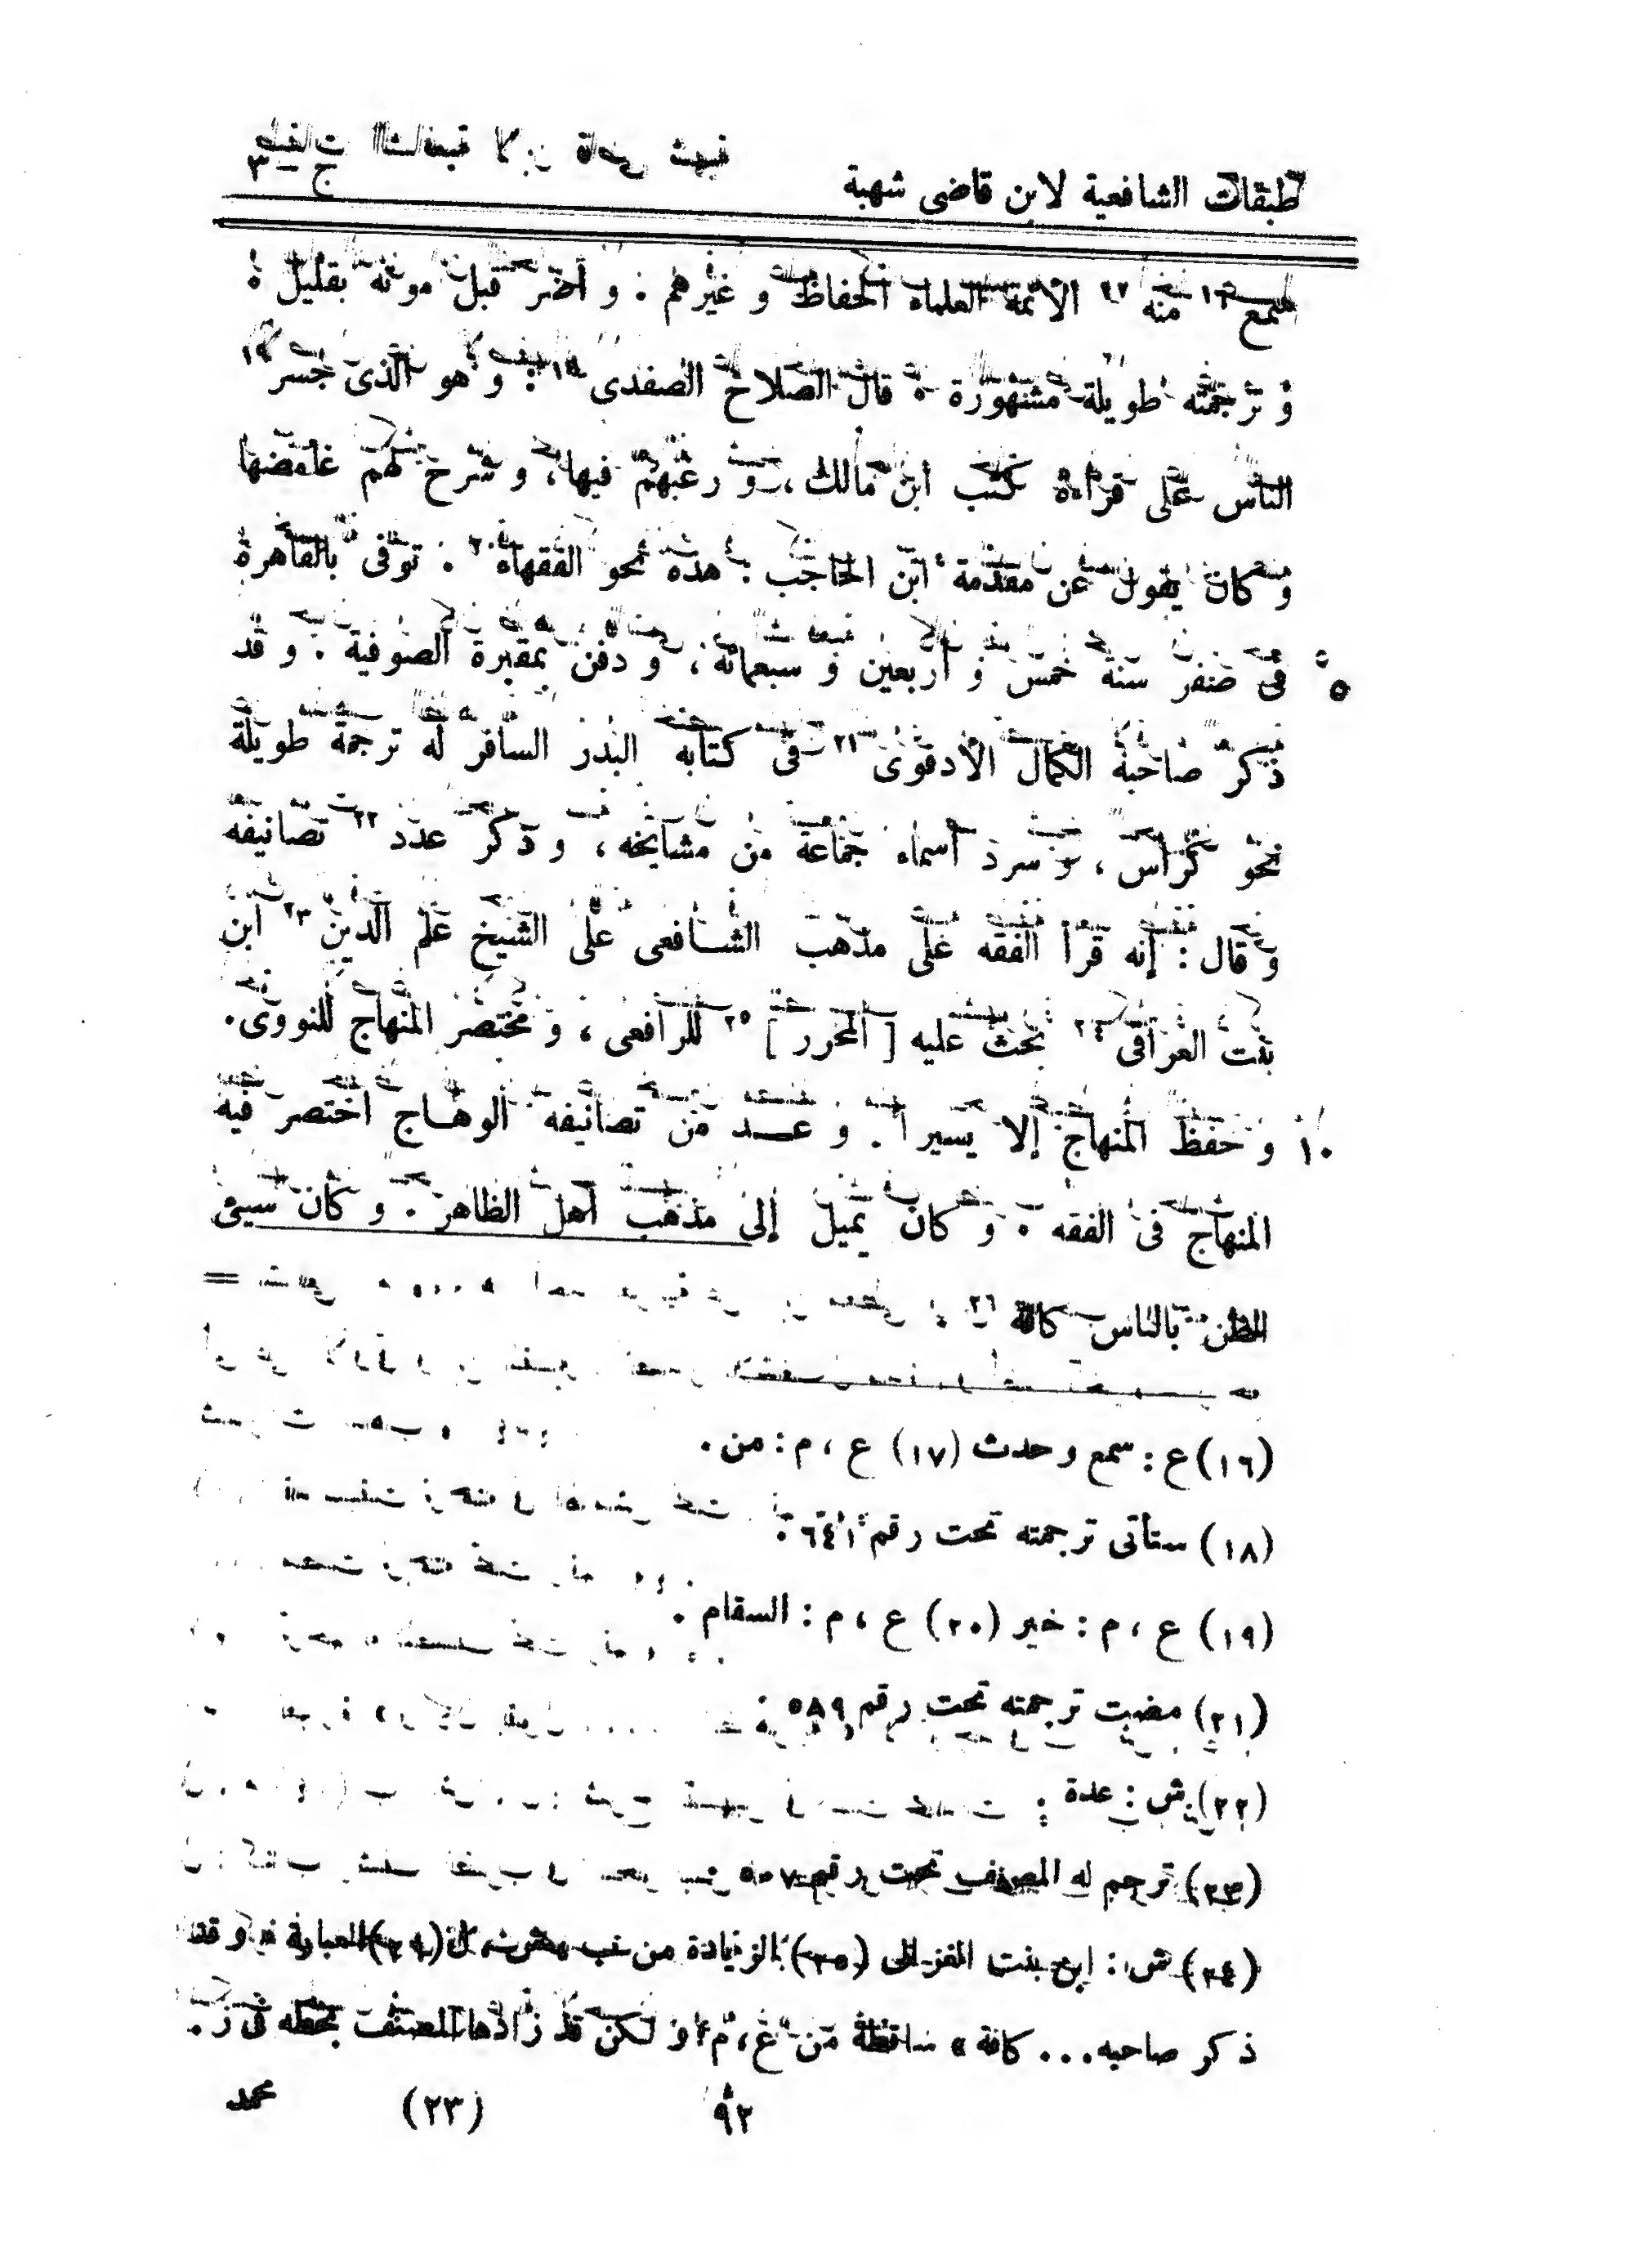 طبقات الشافعية لابن قاضى شهبة ج - ٣
سمع١٦ منه١٧ الأئمة العلماء الحفاظ و غيرهم . و أضر قبل موته بقليل ،
و ترجمته طويلة مشهورة ، قال الصلاح الصفدى١٨ : و هو الذى جسر١٩
الناس على قراءة كتب ابن مالك، و رغبهم فيها، و شرح لهم غامضها
و كان يقول عن مقدمة ابن الحاجب : هذه نحو الفقهاء٢٠ . توفى بالقاهرة
فى صفر سنة خمس و أربعين و سبعمائة ، و دفن بمقبرة الصوفية . و قد ٥
ذكر صاحبه الكمال الأدفوى٢١ فى كتابه البدر السافر له ترجمة طويلة
نحو كراس ، و سرد أسماء جماعة من مشايخه ، و ذكر عدد٢٢ تصانيفه
و قال : إنه قرأ الفقه على مذهب الشافعى على الشيخ علم الدين٢٣ ابن
بنت العراقى٢٤ بحث عليه [ المحرر ]٢٥ للرافعى ، و مختصر المنهاج للنووى .
١٠ و حفظ المنهاج إلا يسيرا . و عد من تصانيفه الوهاج اختصر فيه
المنهاج فى الفقه . و كان يميل إلى مذهب أهل الظاهر . و كان سيئ
الظن بالناس كافة٢٦
(١٦) ع : سمع وحدث (١٧) ع ، م : من .
(١٨) ستأتى ترجمته تحت رقم ٦٤١ .
(١٩) ع ، م : خير (٢٠) ع ، م : السقام .
(٢١) مضبت ترجمته تحت رقم ٥٨٩
(٢٢) ش : عدة
(٢٣) ترجم له المصنف تحت رقم
(٢٤) ش : ابن بنت الغزالى (٢٥) الزيادة من ب، ش، ل (٢٦) العبارة « و قد
ذكر صاحبه ... كافة » ساقطة من ع ، م ، و لكن قد زادها المصنف بخطه فى ز .
٩٢ (٢٣) محمد